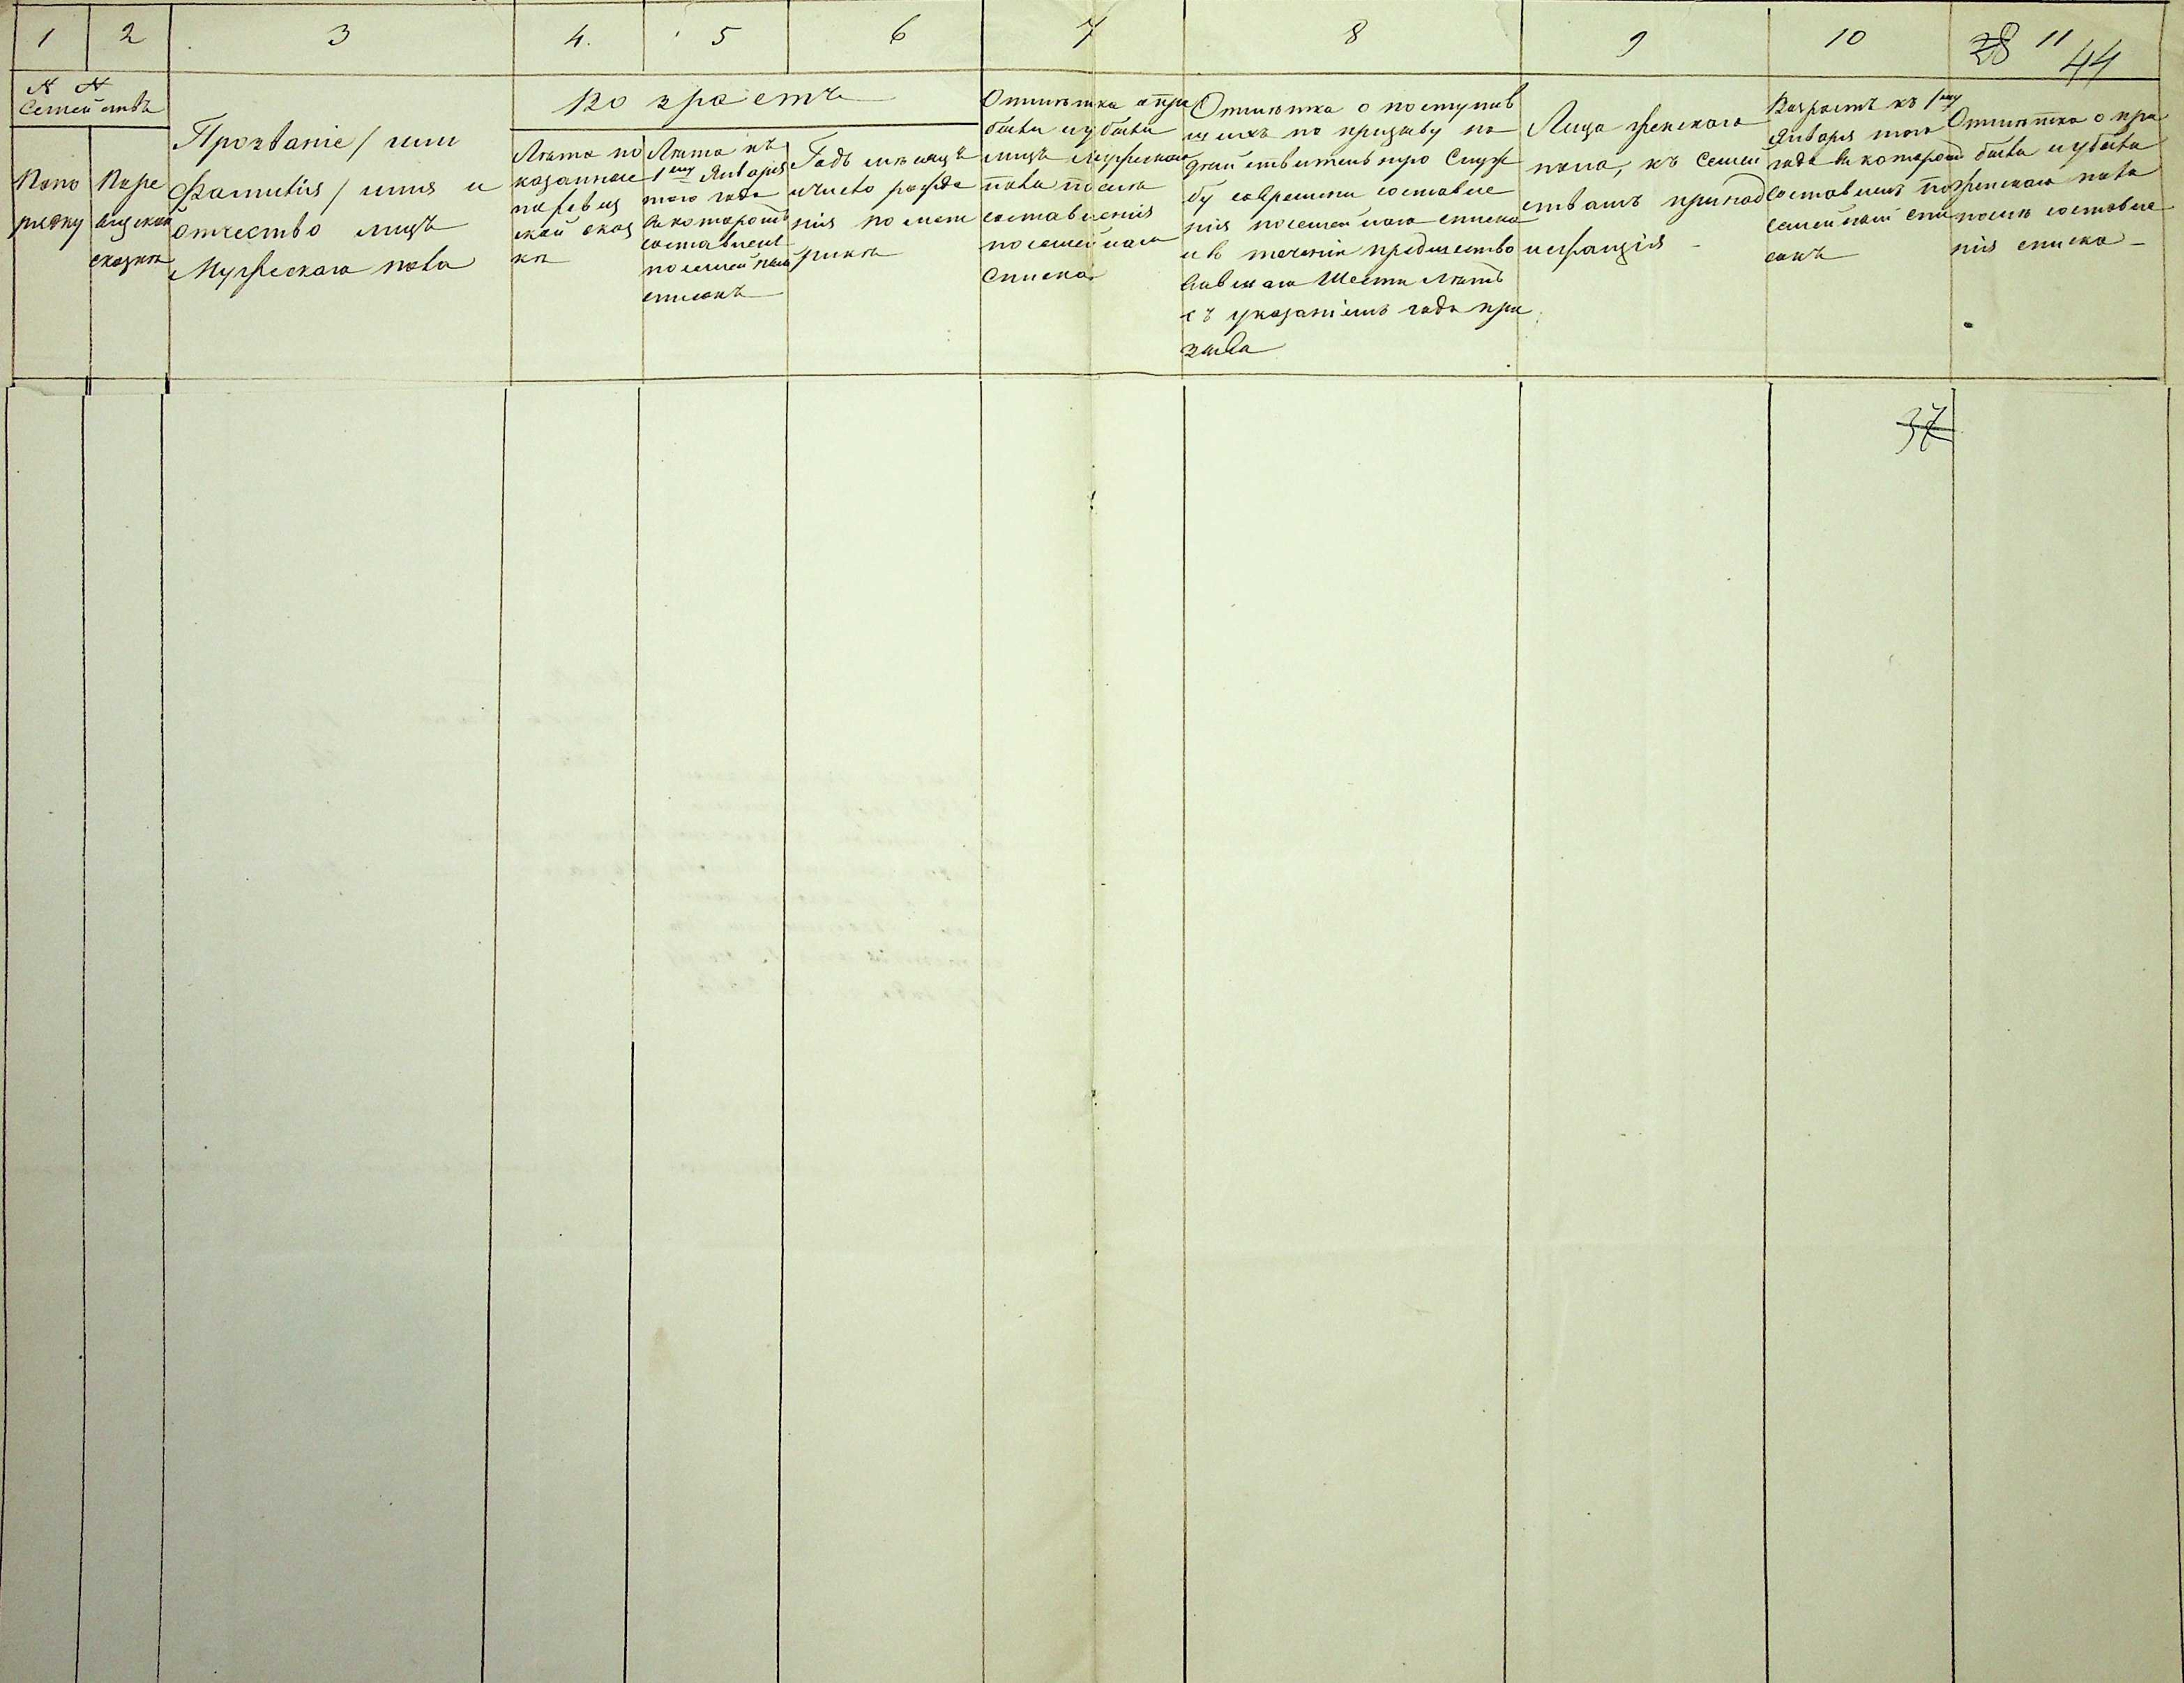 1 2 3 4. 5 6 7 8 9 10 28 11 44
N N
Семействъ
Попо
рядку
Поре
визской
сказкѣ
Прозваніе / или
фамилія / имя и
отчество лицъ
Мужескаго пола
Возрастъ
Лѣта по
казанные
по ревиз
ской сказ
кѣ
Лѣта къ
1му Января
того года
въ которомъ
составленъ
посемейный
списокъ
Годъ мѣсяцъ
и число рожде
нія по мет
рикѣ
Отмѣтка о при
были и убыли
лицъ мужескаго
пола послѣ
составленія
посемейнаго
списка
Отмѣтка о поступив
шихъ по призыву на
дѣйствительную служ
бу со времени составле
нія посемейнаго списка
и въ теченіи предшество
вавшаго Шести лѣтъ
съ указаніемъ года при
зыва
Лица женскаго
пола, къ семей
ствамъ принад
лежащія
Возрастъ къ 1му
Января того
года въ которомъ
составленъ по
семейный спи
сокъ
Отмѣтка о при
были и убыли
женскаго пола
послѣ составле
нія списка
37